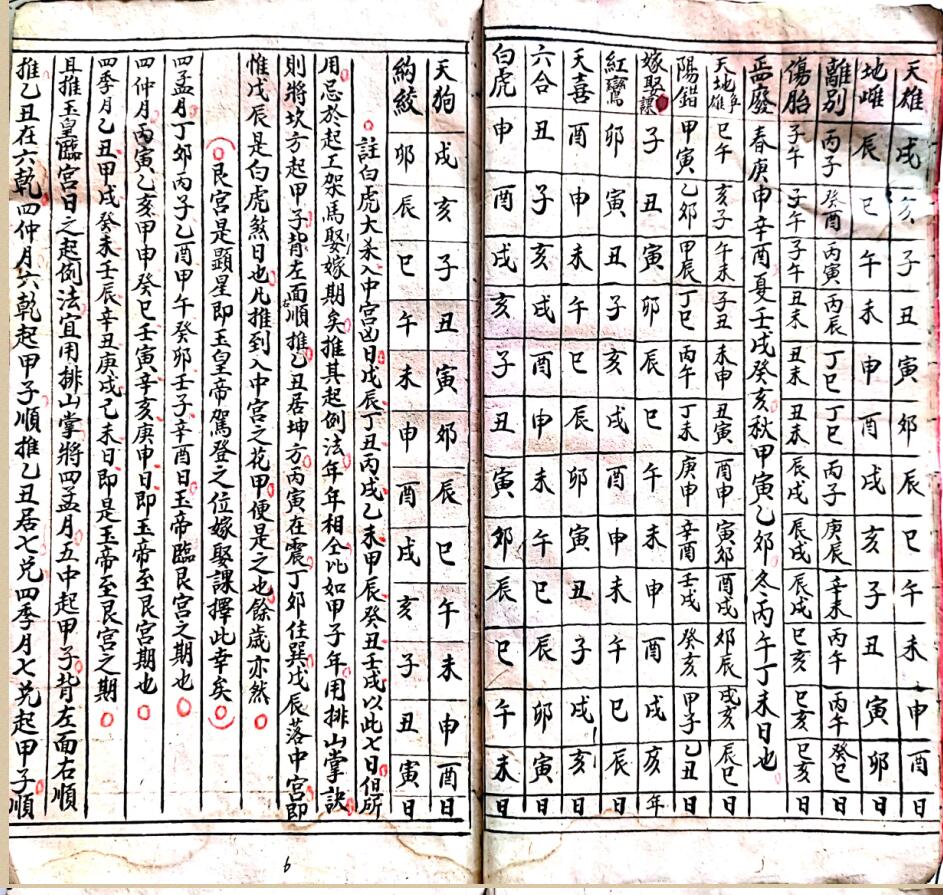 天雄 戌 亥 子 丑 寅 卯 辰 巳 午 未 申 酉 日
地雌 辰 巳 午 未 申 酉 戌 亥 子 丑 寅 卯 日
離別 丙子 癸酉 丙寅 丙辰 丁巳 丁巳 丙子 庚辰 辛未 丙午 丙午 癸巳 日
傷胎 子午 子午 子午 丑未 丑未 丑未 辰戌 辰戌 辰戌 巳亥 巳亥 巳亥 日
正廢 春庚申辛酉夏壬戌癸亥秋甲寅乙卯冬丙午丁未日也
天地雌雄 巳午 亥子 午未 子丑 未申 丑寅 酉申 寅卯 酉戌 卯辰 戌亥 辰巳 日
陽錯 甲寅 乙卯 甲辰 丁巳 丙午 丁未 庚申 辛酉 壬戌 癸亥 甲子 乙丑 日
嫁娶課 子 丑 寅 卯 辰 巳 午 未 申 酉 戌 亥 年
紅鸞 卯 寅 丑 子 亥 戌 酉 申 未 午 巳 辰 日
天喜 酉 申 未 午 巳 辰 卯 寅 丑 子 戌 亥 日
六合 丑 子 亥 戌 酉 申 未 午 巳 辰 卯 寅 日
白虎 申 酉 戌 亥 子 丑 寅 卯 辰 巳 午 未 日
天狗 戌 亥 子 丑 寅 卯 辰 巳 午 未 申 酉 日
納絞 卯 辰 巳 午 未 申 酉 戌 亥 子 丑 寅 日
註白虎大杀入中宮凶日戊辰丁丑丙戌乙未甲辰癸丑壬戌以此七日但所
用忌於起工架馬娶嫁期矣推其起例法年年相仝比如甲子年用排山掌訣
則將坎方起甲子背左面右順推乙丑居坤方丙寅在震丁卯住巽戊辰落中宮即
惟戊辰是白虎煞日也凡推到入中宮之花甲便是之也餘歲亦然
艮宮是顕星即玉皇帝駕登之位嫁娶課擇此幸矣
四孟月丁卯丙子乙酉甲午癸卯壬子辛酉日玉帝臨艮宮之期也
四仲月丙寅乙亥甲申癸巳壬寅辛亥庚申日即玉帝至艮宮期也
四季月乙丑甲戌癸未壬辰辛丑庚戌己未日即是玉帝至艮宮之期
且推玉皇臨宮日之起例法宜用排山掌將四孟月五中起甲子背左面右順
推乙丑在六乾四仲月六乾起甲子順推乙丑居七兑四季月七兑起甲子順
6